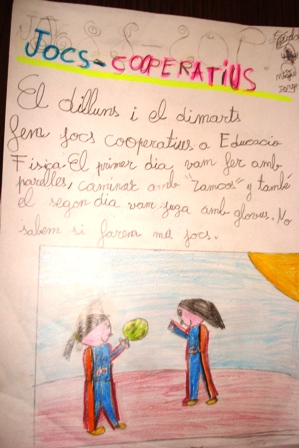 JOCS-COOPERATIUS
El dilluns i el dimarts
fem jocs cooperatius a Educacio
Fisica. El primer dia vam fer amb
parelles, caminar amb "zancos" y també
el segon dia vam juga amb globus. No
sabem si farem més jocs.